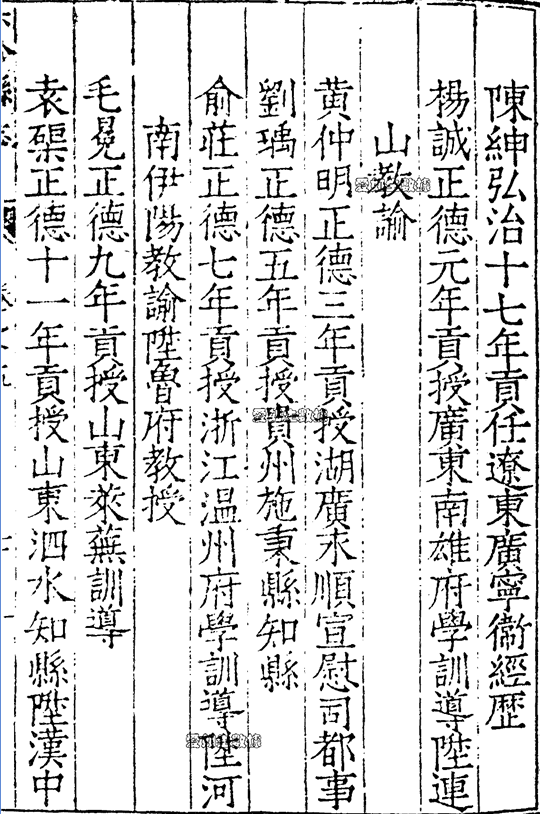 陳紳弘治十七年貢任遼東廣寧衞經歷
楊誠正德元年貢授廣東南雄府學訓導陞連
山教諭
黃仲明正德三年貢授湖廣永順宣慰司都事
劉瑀正德五年貢授貴州施秉縣知縣
俞莊正德七年貢授浙江温州府學訓導陞河
南伊陽教諭陞魯府教授
毛冕正德九年貢授山東萊蕪訓導
袁㮚正德十一年貢授山東泗水知縣陞漢中